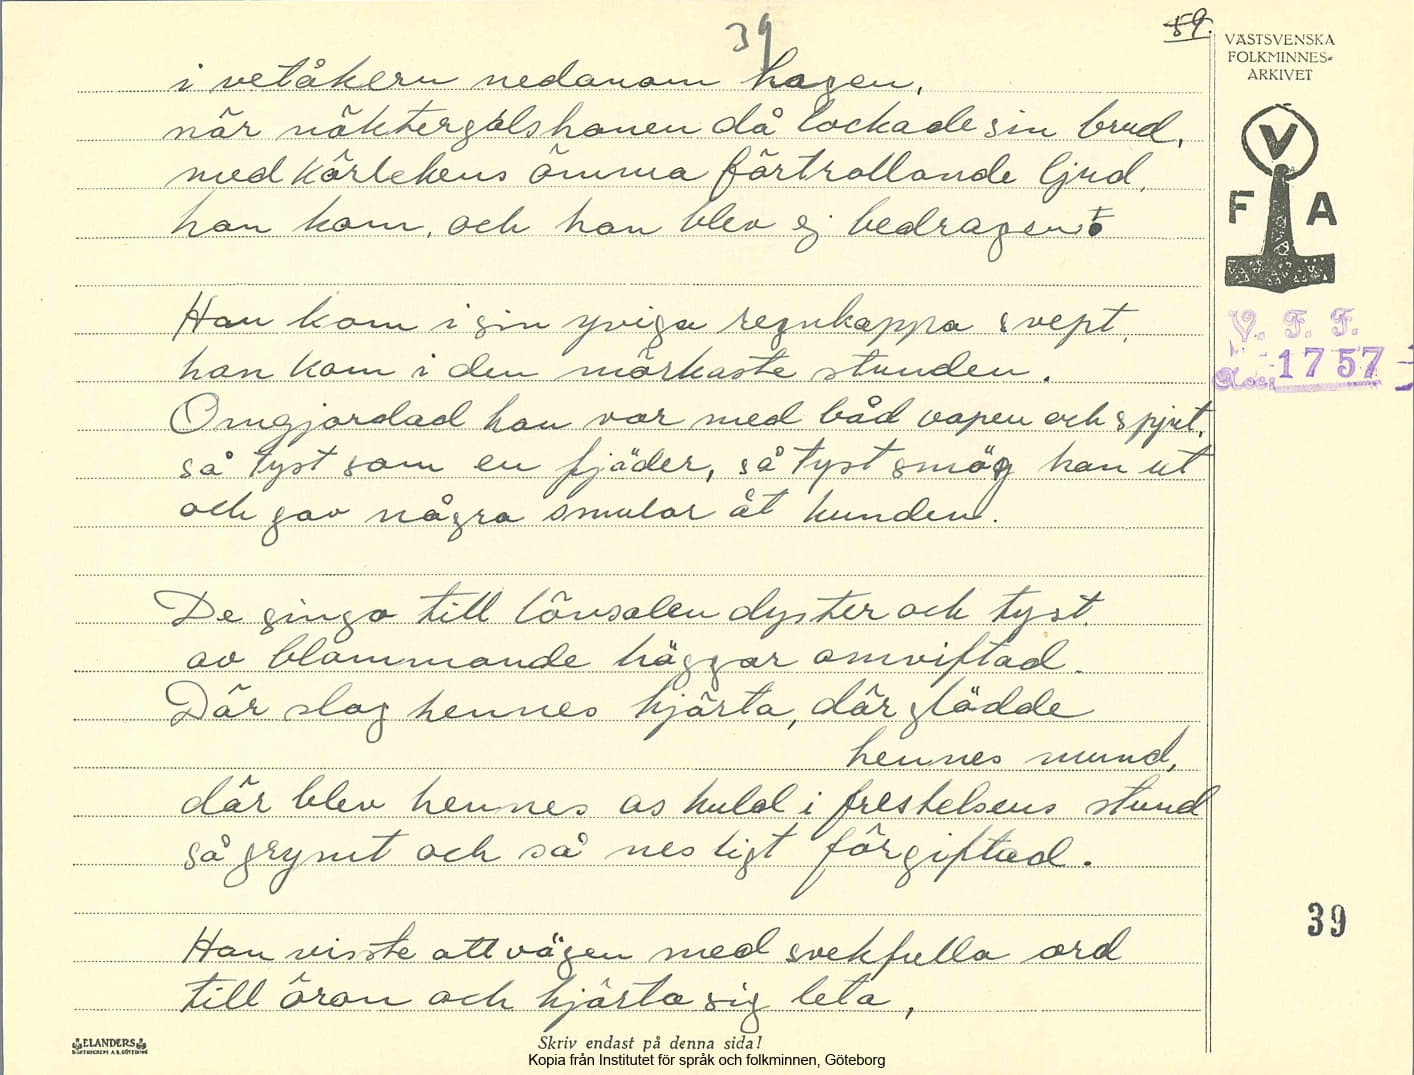 39
59.
VÄSTSVENSKA
FOLKMINNES-
ARKIVET
V
F A
V. F. F.
1757
i vetåkern nedanom hagen,
när näktergalshanen då lockade sin brud,
med kärlekens ömma förtrollande ljud,
han kom, och han blev ej bedragen
Han kom i sin yviga regnkappa svept,
han kom i den mörkaste stunden.
Omgjordad han var med båd vapen och spjut,
så tyst som en fjäder, så tyst smög han ut
och gav några smular åt hunden.
De gingo till lövsalen dyster och tyst.
av blommande häggar omviftad.
Där slog hennes hjärta, där glödde
hennes mund,
där blev hennes oskuld i frestelsens stund
så grymt och så nesligt förgiftad.
Han visste att vägen med svekfulla ord
till öron och hjärta sig leta,
39
ELANDERS
Skriv endast på denna sida!
Kopia från Institutet för språk och folkminnen, Göteborg